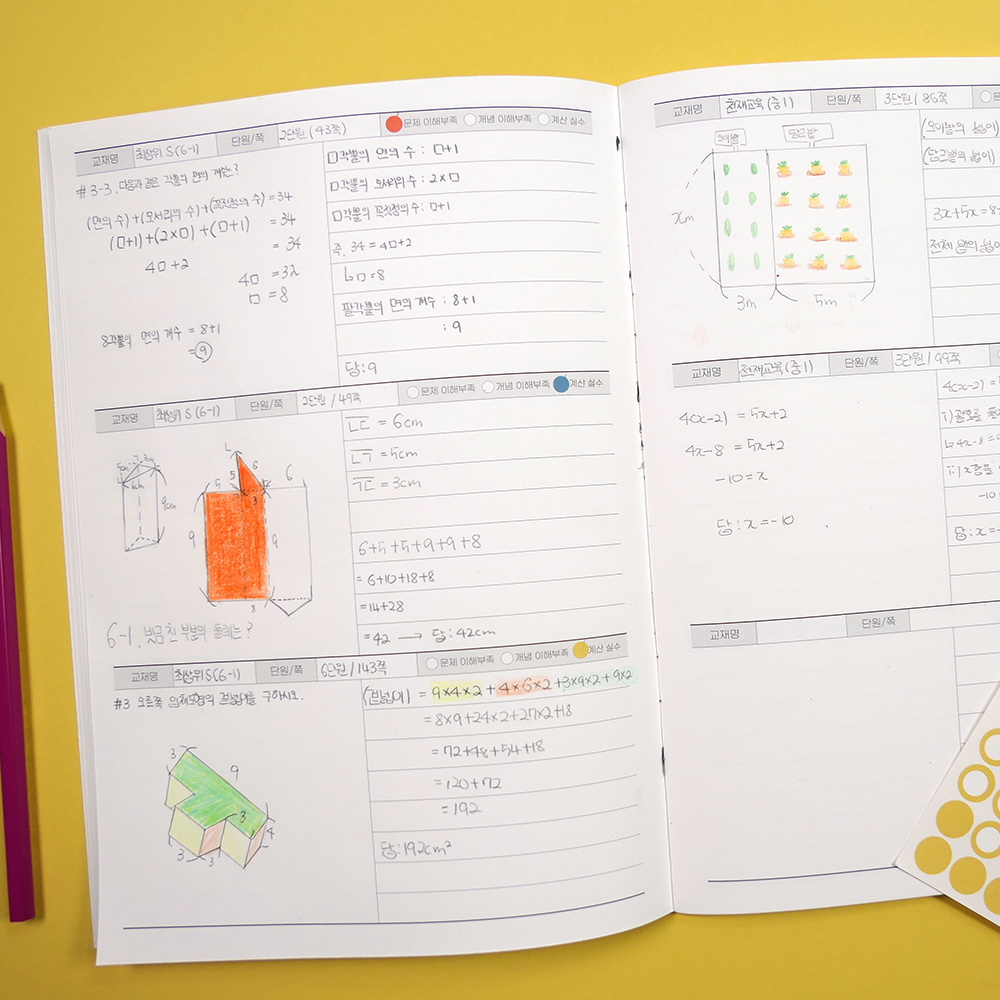 교재명 최상위 S (6-1) 단원/쪽 2단원 (43쪽) 문제 이해부족 개념 이해부족 계산 실수
#3-3. 다음과 같은 각뿔의 면의 개수는?
(면의 수)+(모서리의 수)+(꼭짓점의 수) = 34
(□+1)+(2×□)+(□+1) = 34
4□+2 = 34
4□ = 32
□ = 8
8각뿔의 면의 개수 = 8+1
= 9
□각뿔의 면의 수 : □+1
□각뿔의 모서리의 수 : 2×□
□각뿔의 꼭짓점의 수 : □+1
즉, 34 = 4□+2
□ = 8
팔각뿔의 면의 개수 : 8+1
: 9
답 : 9
교재명 최상위 S (6-1) 단원/쪽 2단원 / 49쪽 문제 이해부족 개념 이해부족 계산 실수
9cm
5 6 6
5 3
9 9
8
6-1. 빗금친 부분의 둘레는?
ㄴㄷ = 6cm
ㄴㄱ = 5cm
ㄱㄷ = 3cm
6+5+5+9+9+8
= 6+10+18+8
= 14+28
= 42 → 답 : 42cm
교재명 최상위 S (6-1) 단원/쪽 6단원 / 143쪽 문제 이해부족 개념 이해부족 계산 실수
#3 오른쪽 입체도형의 겉넓이를 구하시오.
3 9
3 4
3 3
(겉넓이) = 9×4×2 + 4×6×2 + 3×9×2 + 9×2
= 8×9+24×2+27×2+18
= 72+48+54+18
= 120+72
= 192
답 : 192cm²
교재명 천재교육 (중1) 단원/쪽 3단원 / 86쪽
오이밭 당근밭
xm
3m 5m
(오이밭의 넓이)
(당근밭의 넓이)
3x+5x = 8
전체 밭의 넓이
교재명 천재교육 (중1) 단원/쪽 3단원 / 99쪽
4(x-2) = 5x+2
4x-8 = 5x+2
-10 = x
답 : x = -10
4(x-2) =
-10
답 : x =
교재명 단원/쪽